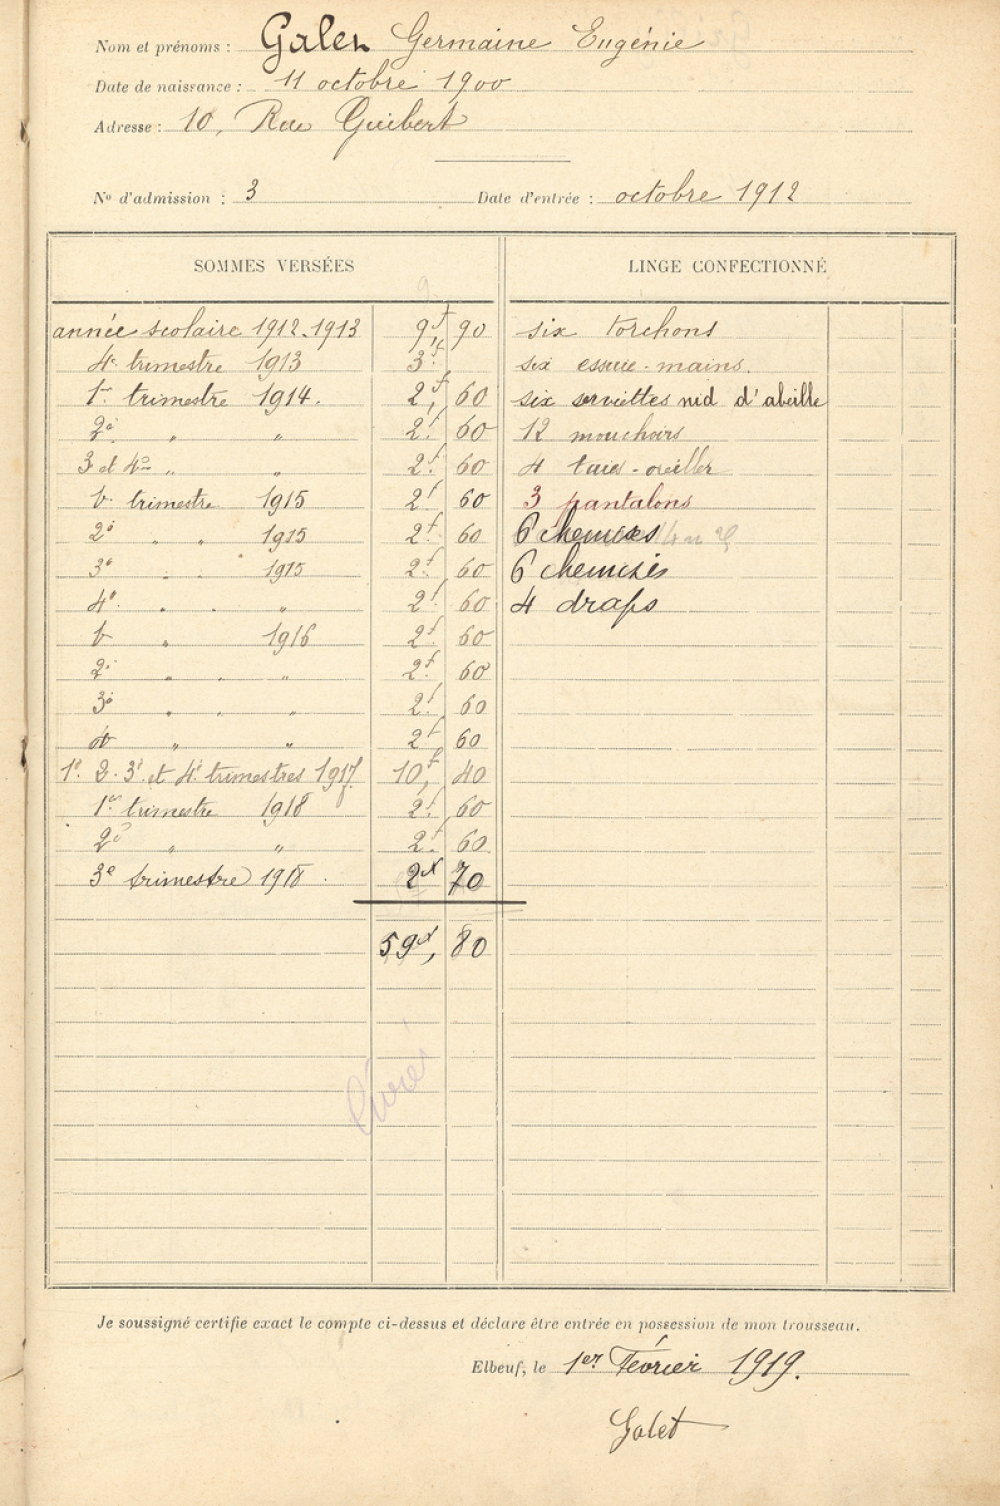 Nom et prénoms : Galen Germaine Eugénie
Date de naissance : 11 octobre 1900
Adresse : 10, Rue Guibert
No d'admission : 3 Date d'entrée : octobre 1912
SOMMES VERSÉES LINGE CONFECTIONNÉ
année scolaire 1912-1913 9f, 90 six torchons
4e trimestre 1913 3f. six essuie-mains.
1er trimestre 1914. 2f, 60 six serviettes nid d'abeille
2e " " 2f. 60 12 mouchoirs
3 et 4e " " 2f. 60 4 taies-oreiller
1r trimestre 1915 2f 60 3 pantalons
2e " " 1915 2f. 60 6 chemises
3e " " 1915 2f. 60 6 chemises
4e. " " 2f 60 4 draps
1r " 1916 2f. 60
2e " " " 2f. 60
3e " " " 2f. 60
" " 2f 60
1e. 2. 3e. et 4e. trimestres 1917. 10f, 40
1er trimestre 1918 2f. 60
2e " " 2f. 60
3e trimestre 1918 . 2f 70
59f, 80
livré
Je soussigné certifie exact le compte ci-dessus et déclare être entrée en possession de mon trousseau.
Elbeuf, le 1er Février 1919.
Galet